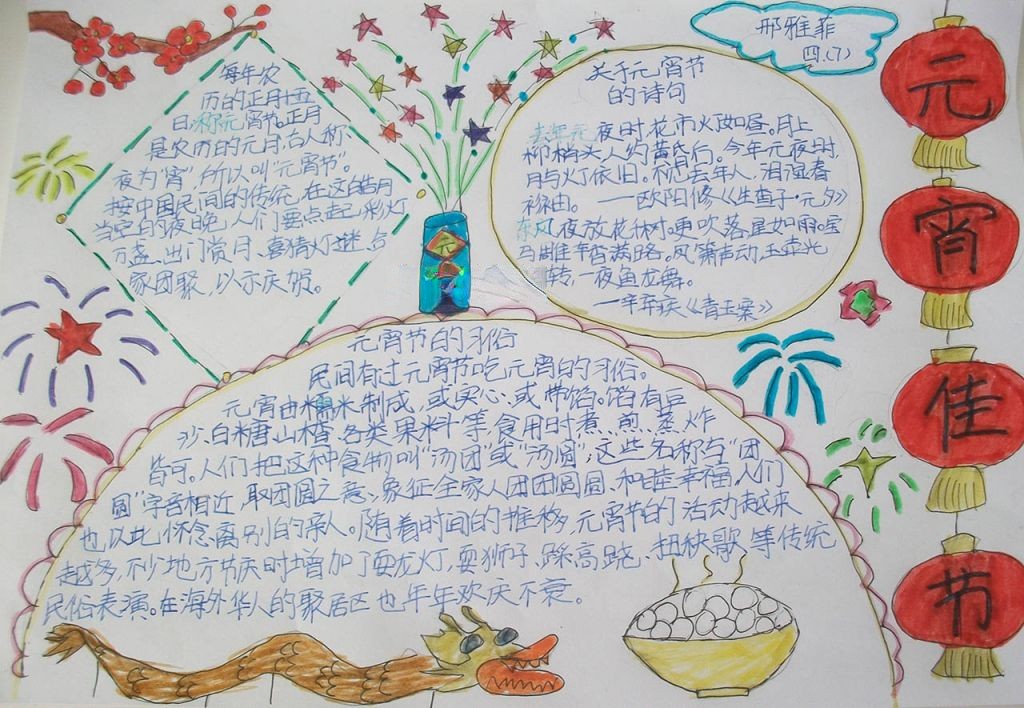 邢雅菲
四.(7)
每年农
历的正月十五
日,称元宵节,正月
是农历的元月,古人称
夜为“宵”,所以叫“元宵节”。
按中国民间的传统,在这皓月
当空的夜晚,人们要点起彩灯
万盏、出门赏月、喜猜灯谜、合
家团聚,以示庆贺。
元
关于元宵节
的诗句
去年元夜时,花市火如昼。月上
柳梢头,人约黄昏后。今年元夜时,
月与灯依旧。不见去年人,泪湿春
衫由。——欧阳修《生查子·元夕》
东风夜放花千树。更吹落、星如雨。宝
马雕车香满路。凤箫声动,玉壶光
转,一夜鱼龙舞。
—辛弃疾《青玉案》
元宵节的习俗
民间有过元宵节吃元宵的习俗。
元宵由糯米制成,或实心、或带馅。馅有豆
沙、白糖、山楂、各类果料等,食用时煮、煎、蒸、炸
皆可。人们把这种食物叫“汤团”或“汤圆”,这些名称与“团
圆”字音相近,取团圆之意、象征全家人团团圆圆、和睦幸福,人们
也以此怀念离别的亲人。随着时间的推移,元宵节的活动越来
越多,不少地方节庆时增加了耍龙灯,耍狮子、踩高跷、扭秧歌等传统
民俗表演。在海外华人的聚居区也年年欢庆不衰。
元
宵
佳
节